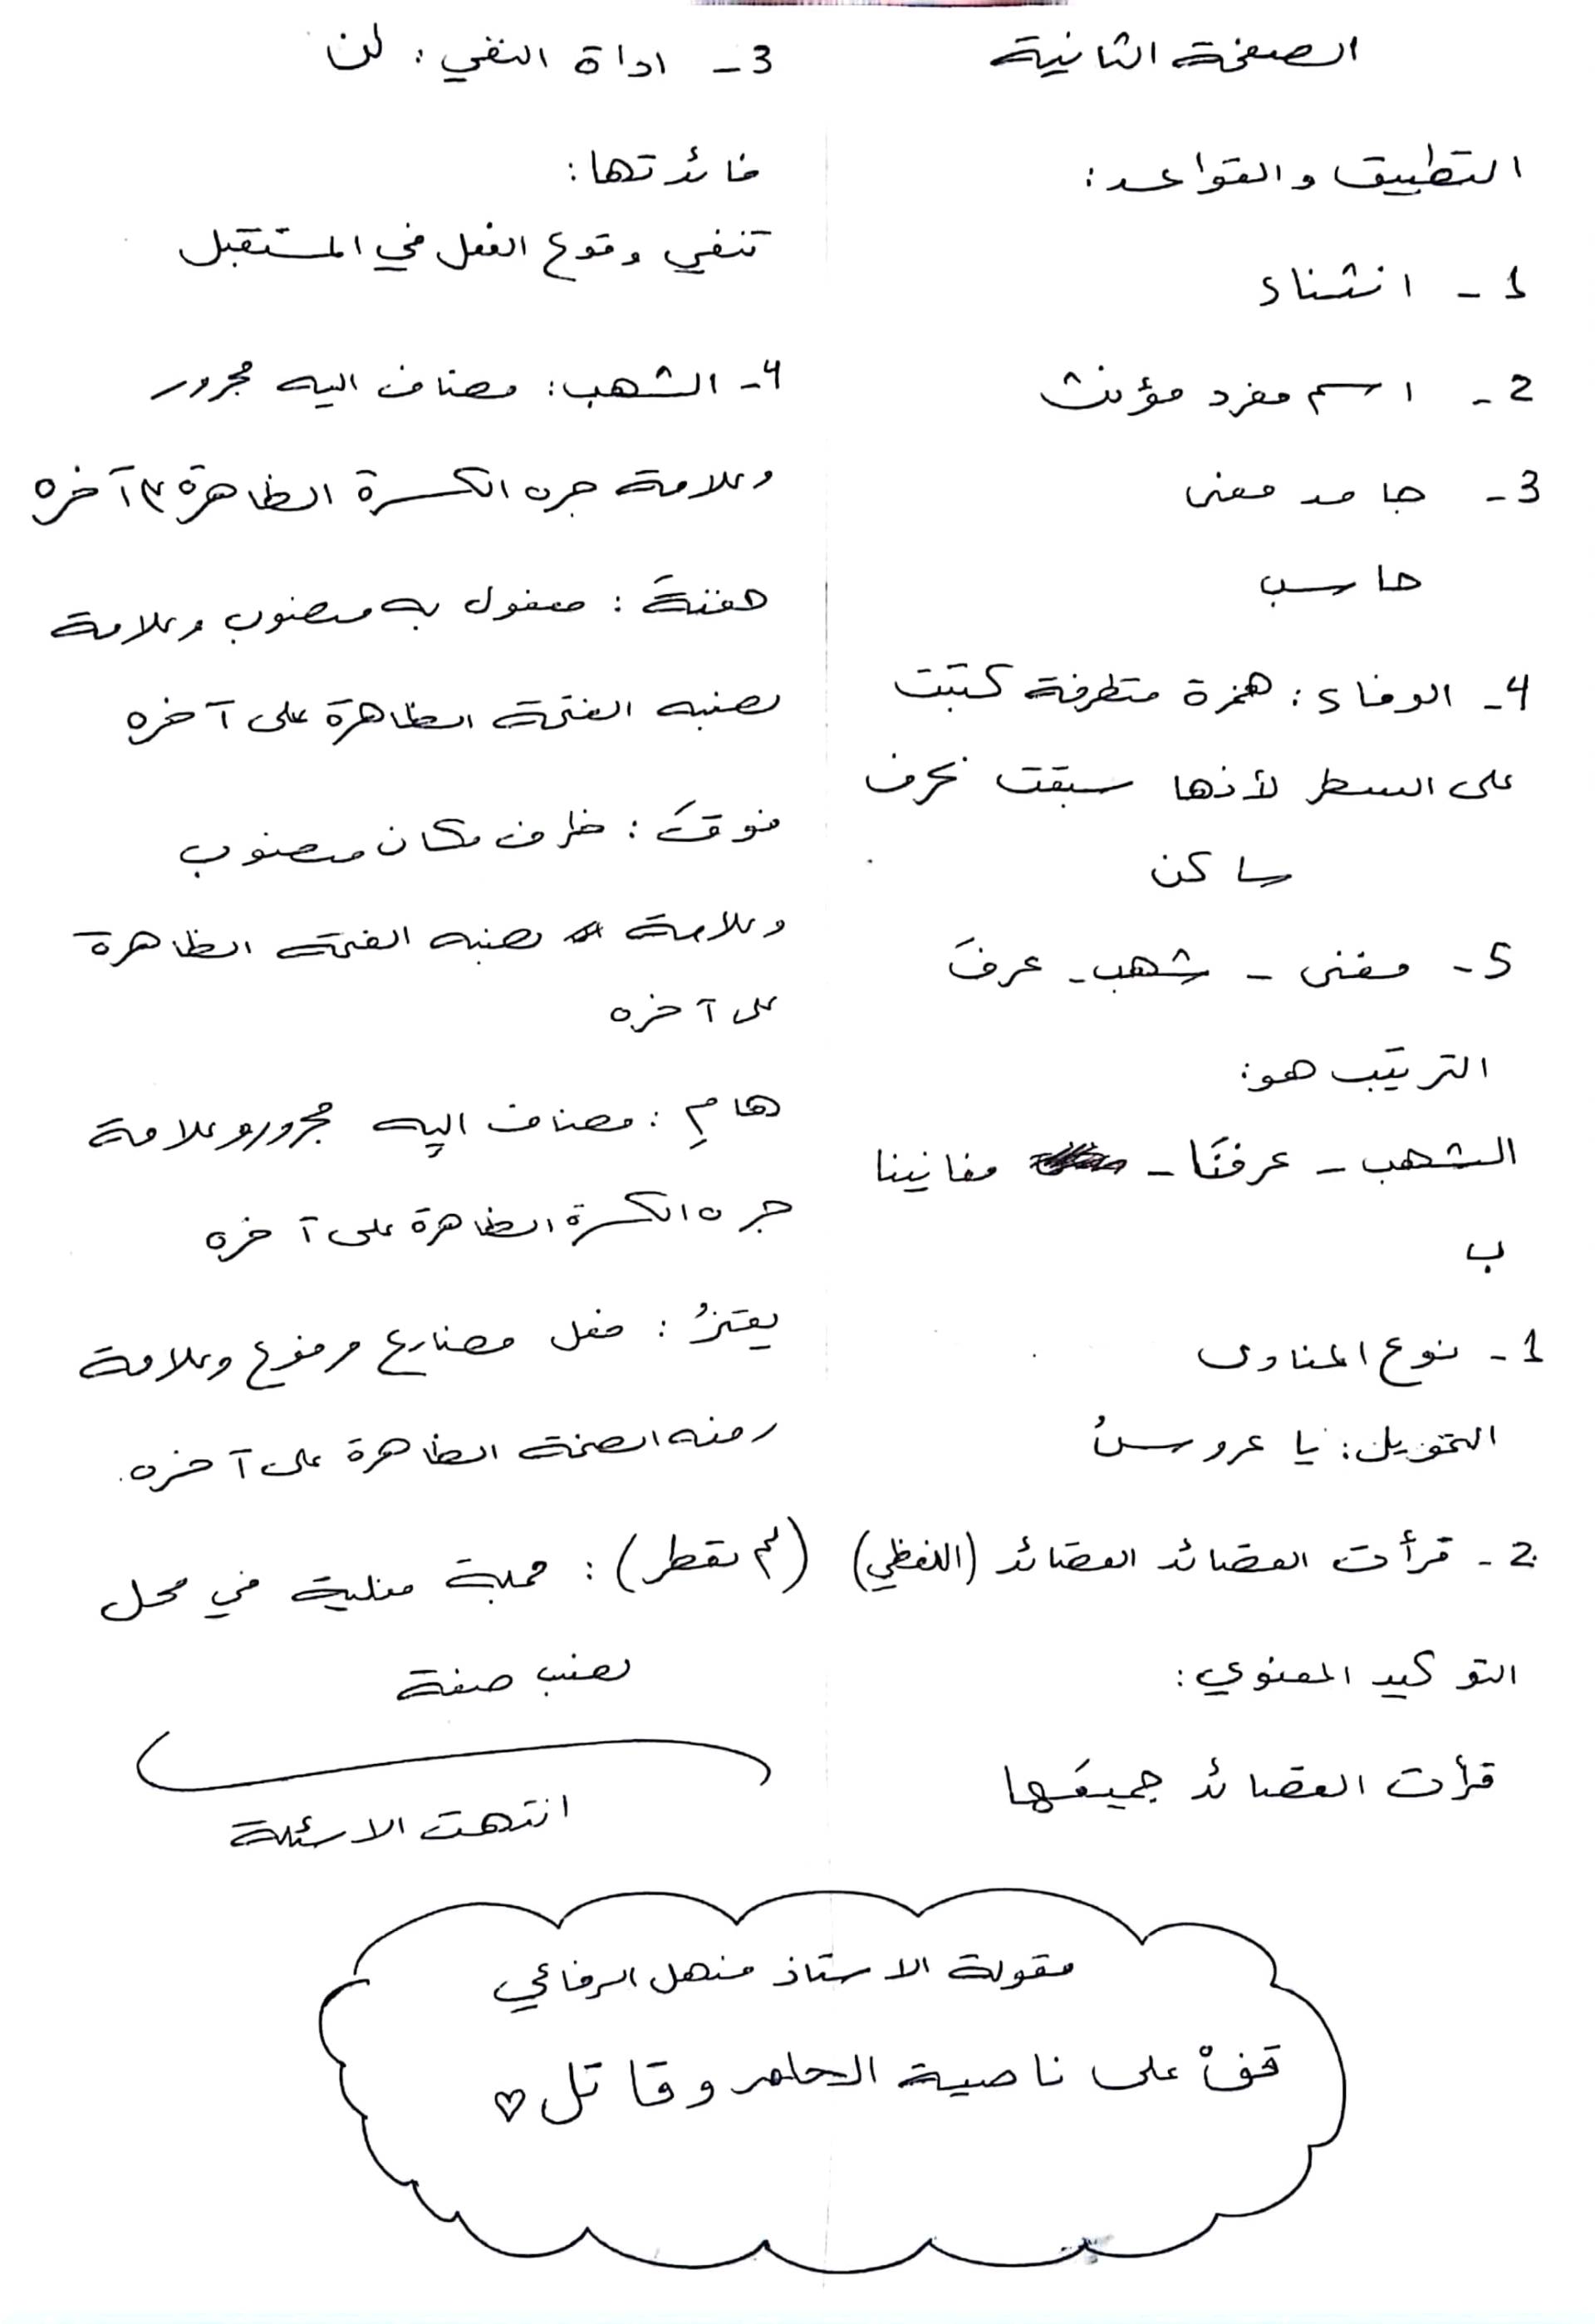 الصفحة الثانية
التطبيق والقواعد:
1- انشناء
2- اسم مفرد مؤنث
3- جامد معنى
حاسب
4- الوفاء: همزة متطرفة كتبت
على السطر لأنها سبقت بحرف
ساكن
5- مغنى - شهب - عرفَ
الترتيب هو:
الشهب - عرفنَا - مغانينا
ب
1- نوع المنادى
التحويل: يا عروسُ
2- قرأت القصائد القصائد (اللفظي)
التوكيد المعنوي:
قرأت القصائد جميعَها
3- اداة النفي: لن
فائدتها:
تنفي وقوع الفعل في المستقبل
4- الشهب: مضاف اليه مجرور
وعلامة جره الكسرة الظاهرة على آخره
هفنةً: مفعول به منصوب وعلامة
نصبه الفتحة الظاهرة على آخره
فوقَ: ظرف مكان منصوب
وعلامة نصبه الفتحة الظاهرة
على آخره
هامِ: مضاف اليه مجرور وعلامة
جره الكسرة الظاهرة على آخره
يعتزُ: فعل مضارع مرفوع وعلامة
رفعه الضمة الظاهرة على آخره.
(لم تقطر): جملة فعلية في محل
نصب صفة
انتهت الاسئلة
مقولة الاستاذ منهل الرفاعي
قفْ على ناصية الحلم وقاتل ♡